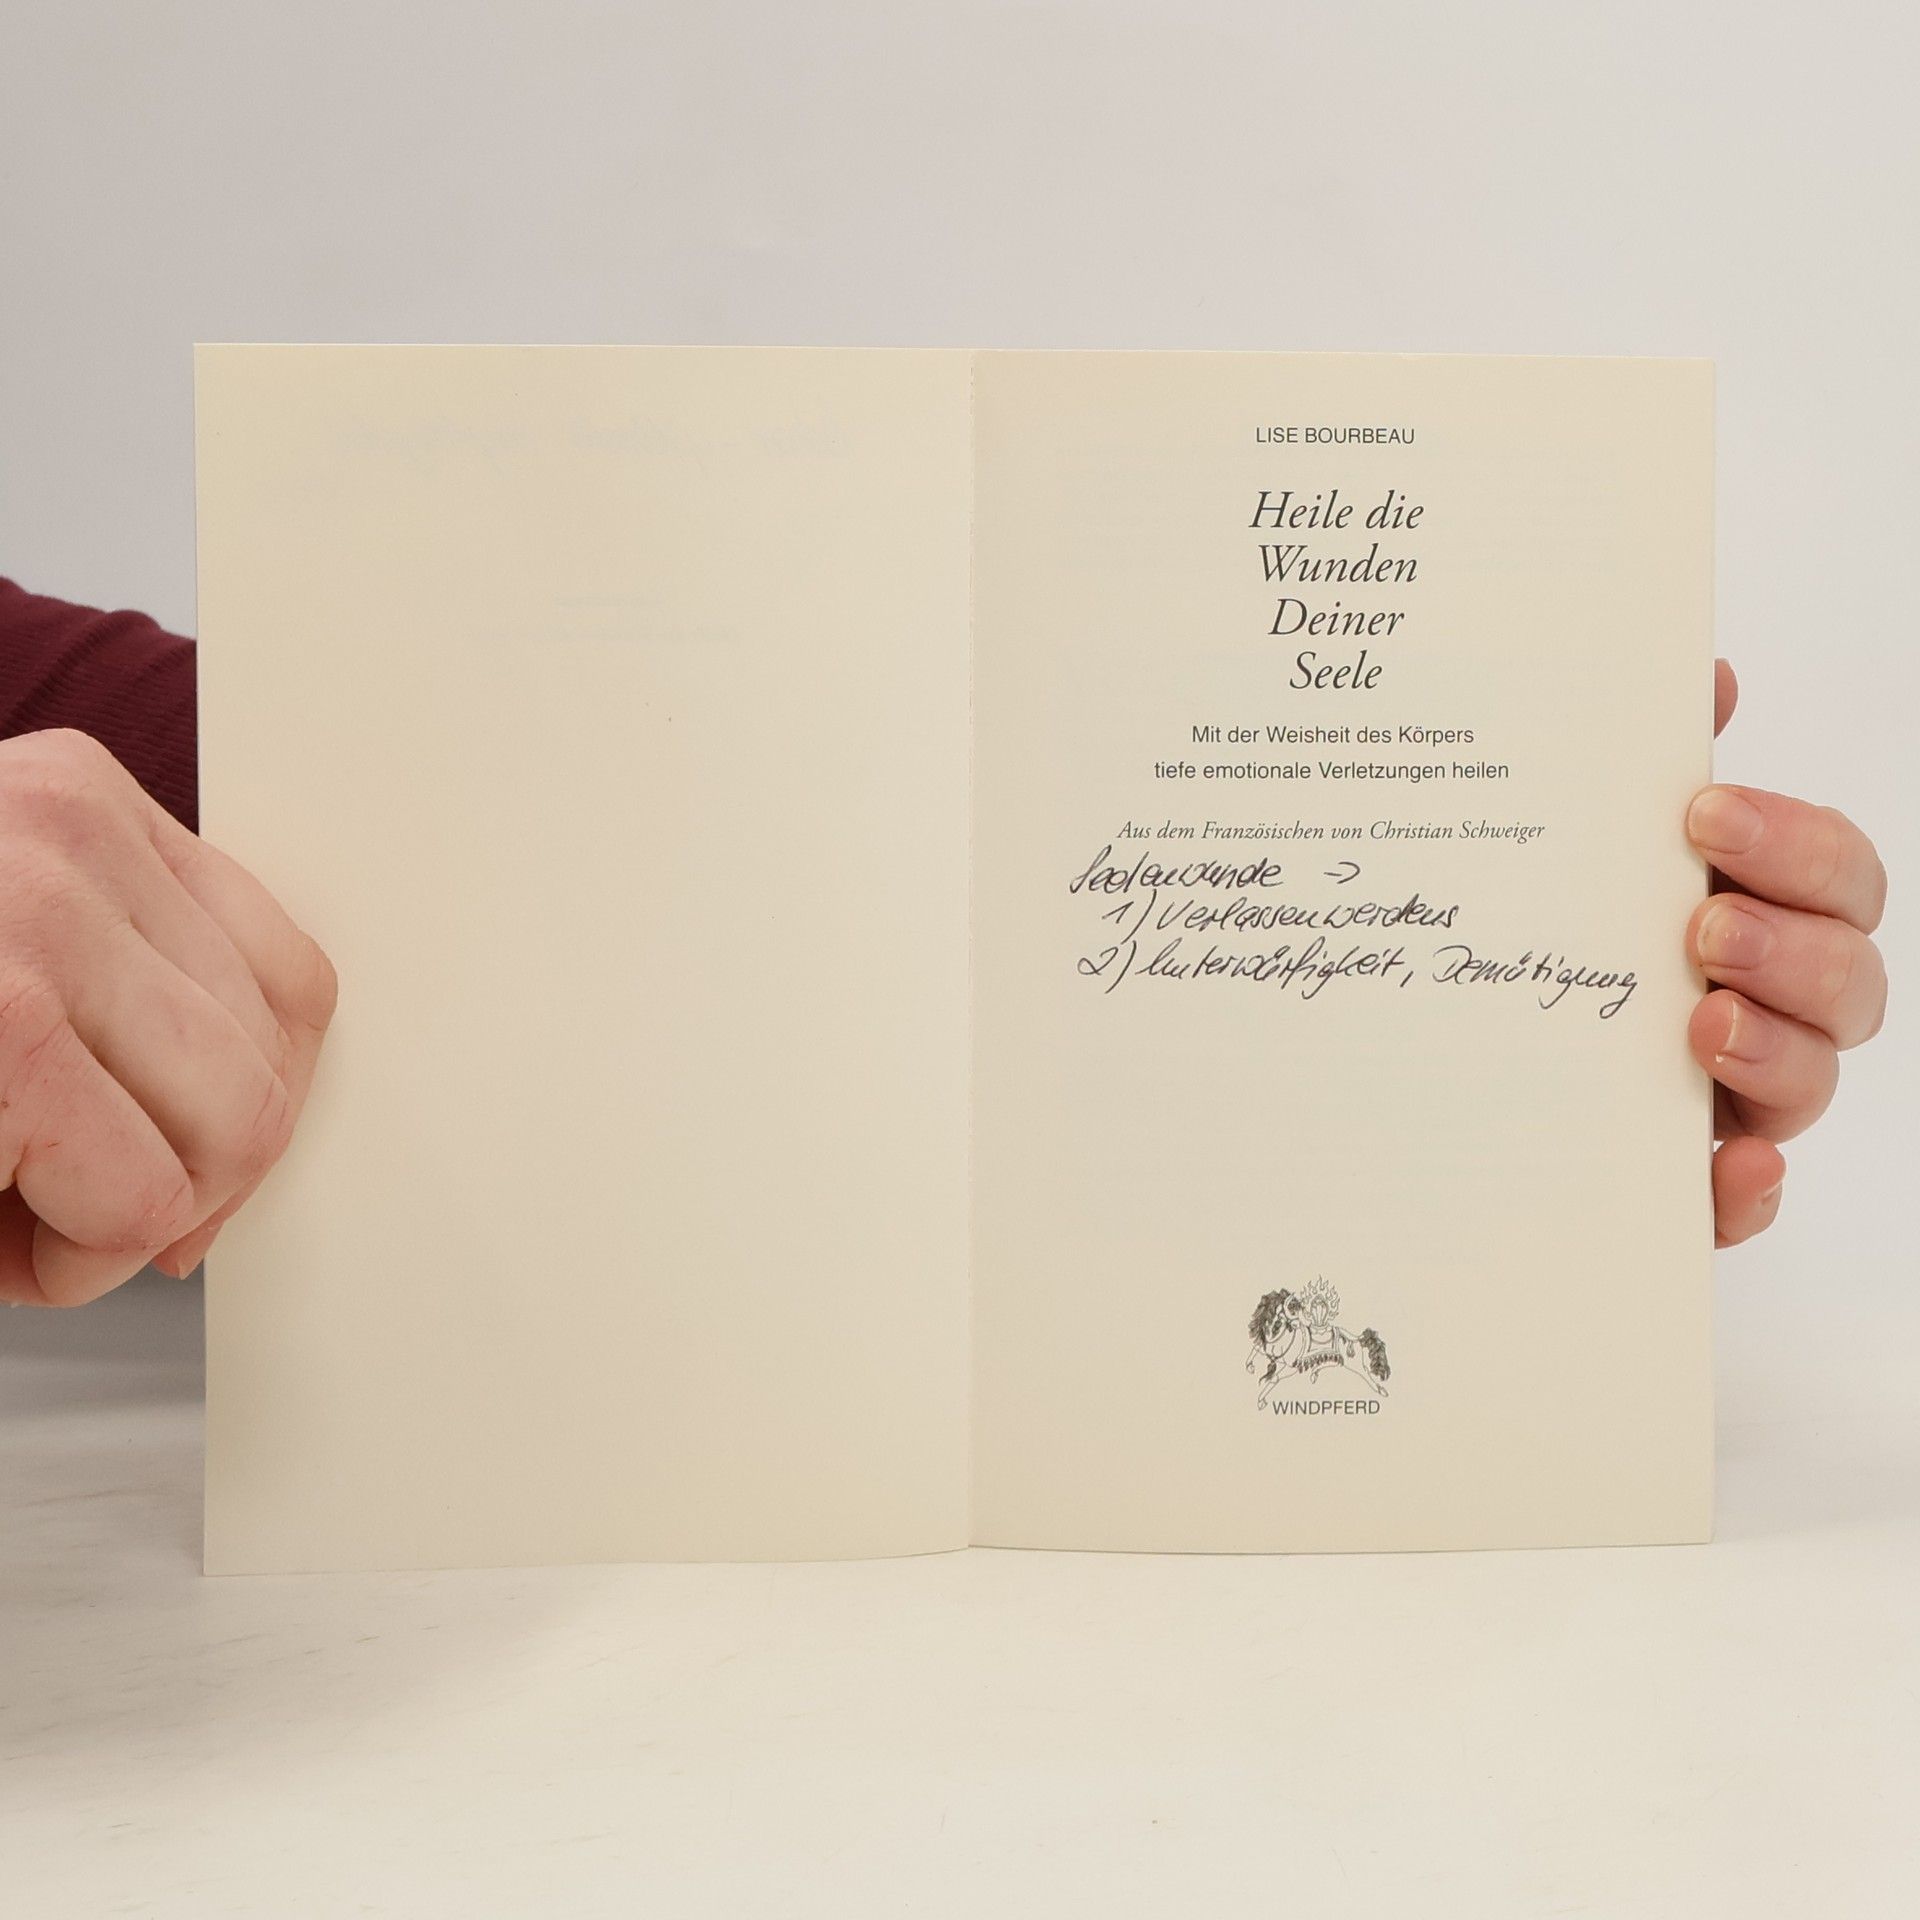 LISE BOURBEAU
Heile die
Wunden
Deiner
Seele
Mit der Weisheit des Körpers
tiefe emotionale Verletzungen heilen
Aus dem Französischen von Christian Schweiger
Seelenwunde →
1) Verlassenwerdens
2) Unterwürfigkeit, Demütigung
WINDPFERD